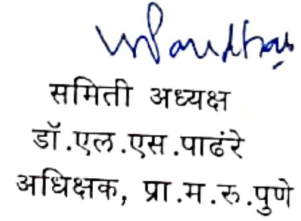 समिती अध्यक्ष
डॉ.एल.एस.पाढंरे
अधिक्षक, प्रा.म.रु.पुणे